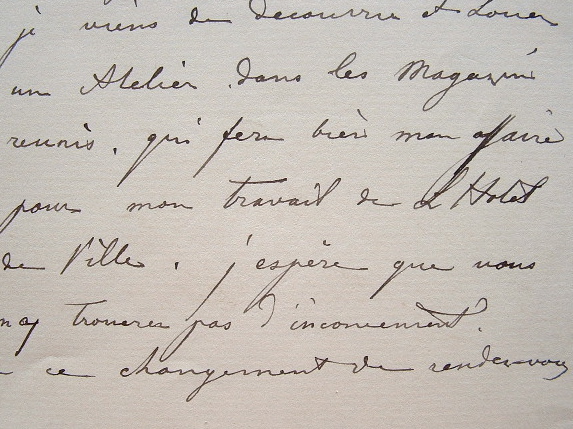 je viens de decouvrir et Louer
un Atelier dans les Magazin
reunis. qui fera bien mon affaire
pour mon travail de L'Hotel
de Ville. j'espère que vous
n'y trouverez pas d'inconvenient.
ce changement de rendez-vous